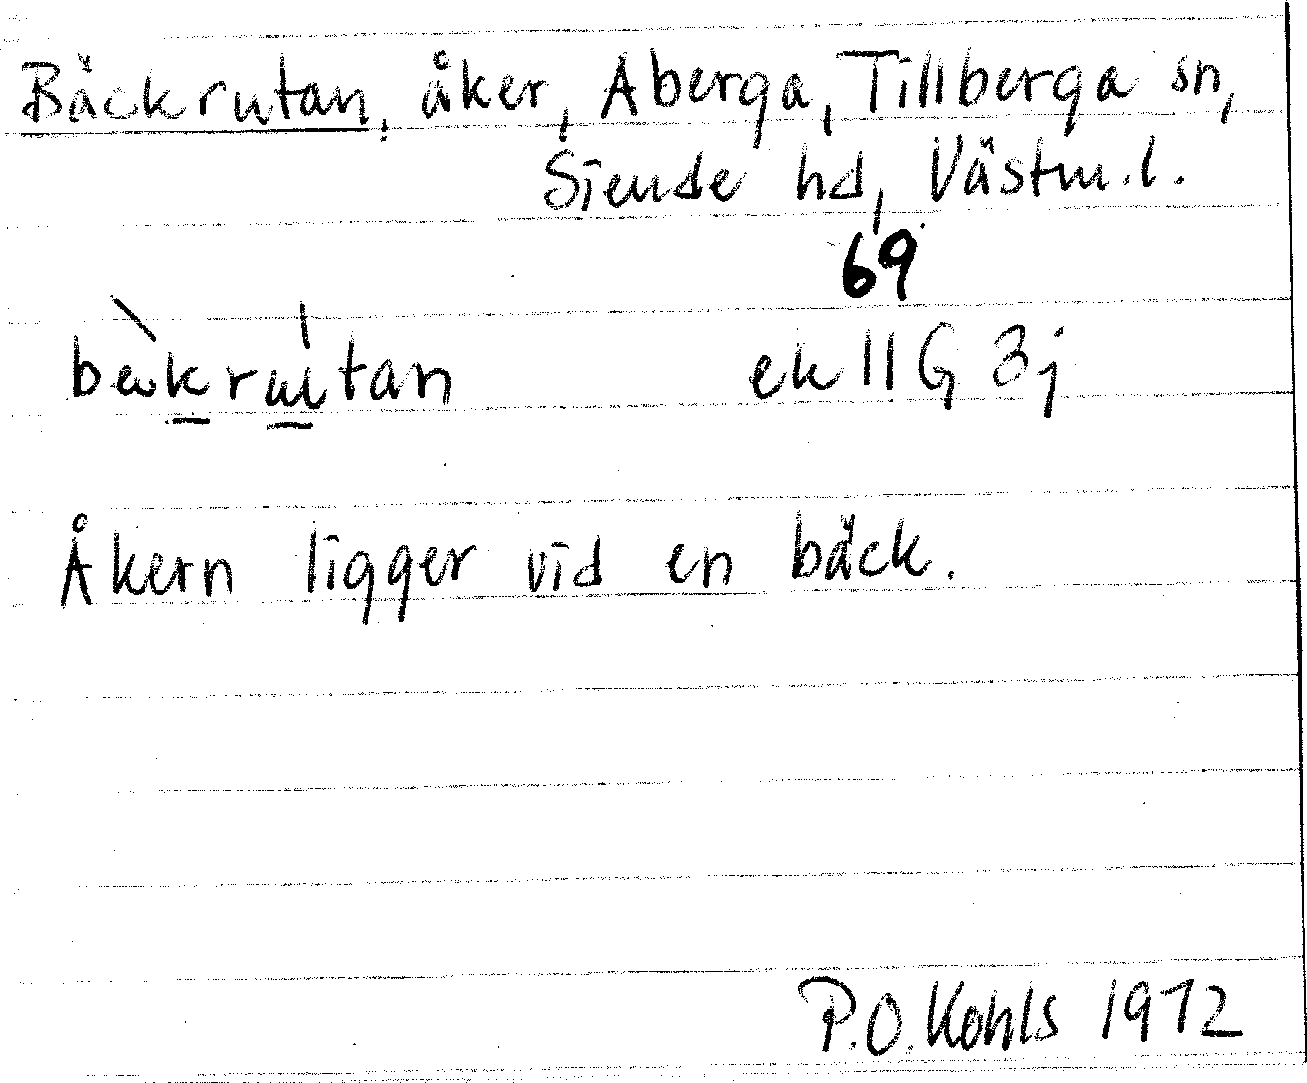 Bäckrutan, åker, Aberga, Tillberga sn,
Siende hd, Västm.l.
69
ek 11G 3j
Åkern ligger vid en bäck.
P.O. Kohls 1972